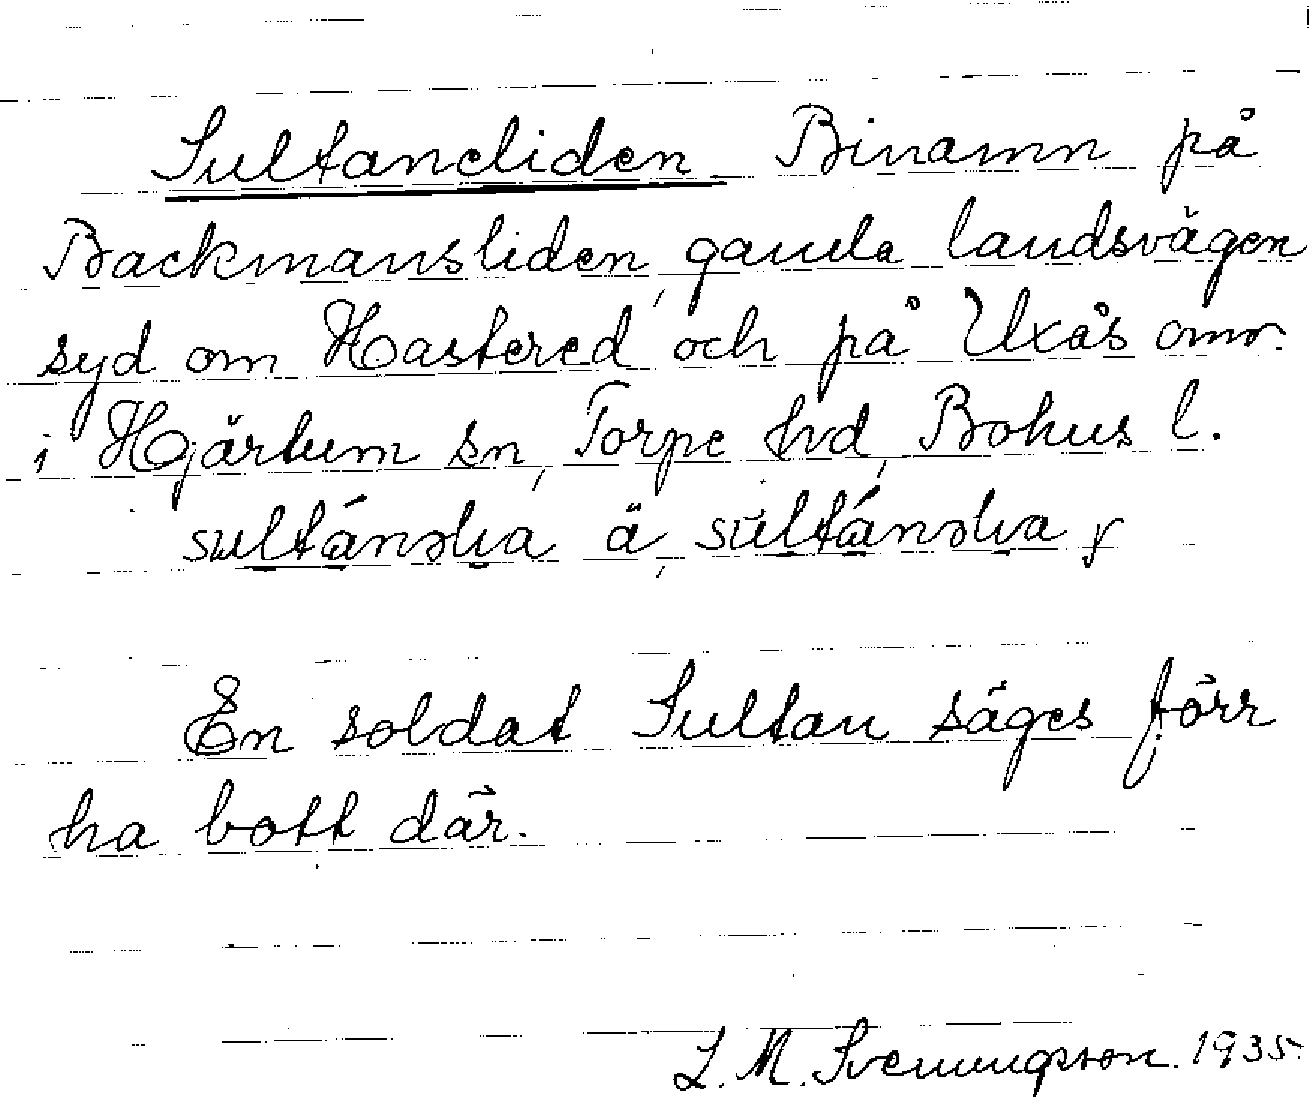 Sultaneliden Binamn på
Backmansliden, gamla landsvägen
syd om Hastered och på Uxås omr.
i Hjärtum sn, Torpe hd, Bohus l.
ä,
En soldat Sultan säges förr
ha bott där.
L. M. Svenungsson. 1935.